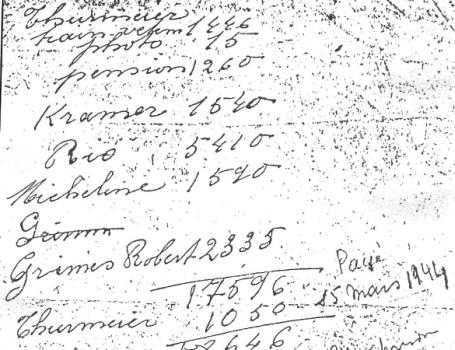 Thurmeier
train 1446
photo 15
pension 1260
Kramer 1540
Rio 5410
Micheline 1590
Grimm
Grimes Robert 2335
17596 Payé
15 mars 1944
Thurmeier 1050
18646